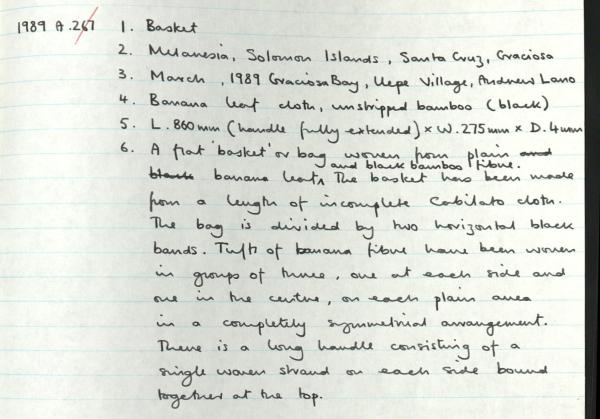 1989 A.267 1. Basket
2. Melanesia, Solomon Islands, Santa Cruz, Graciosa
3. March, 1989 Graciosa Bay, Uepe Village, Andrew Lano
4. Banana leaf cloth, unstripped bamboo (black)
5. L. 860mm (handle fully extended) × W. 275mm × D. 4mm
6. A flat 'basket' or bag woven from plain and
and black bamboo fibre.
black banana leaf. The basket has been made
from a length of incomplete Cabilato cloth.
The bag is divided by two horizontal black
bands. Tufts of banana fibre have been woven
in groups of three, one at each side and
one in the centre, on each plain area
in a completely symmetrial arrangement.
There is a long handle consisting of a
single woven strand on each side bound
together at the top.